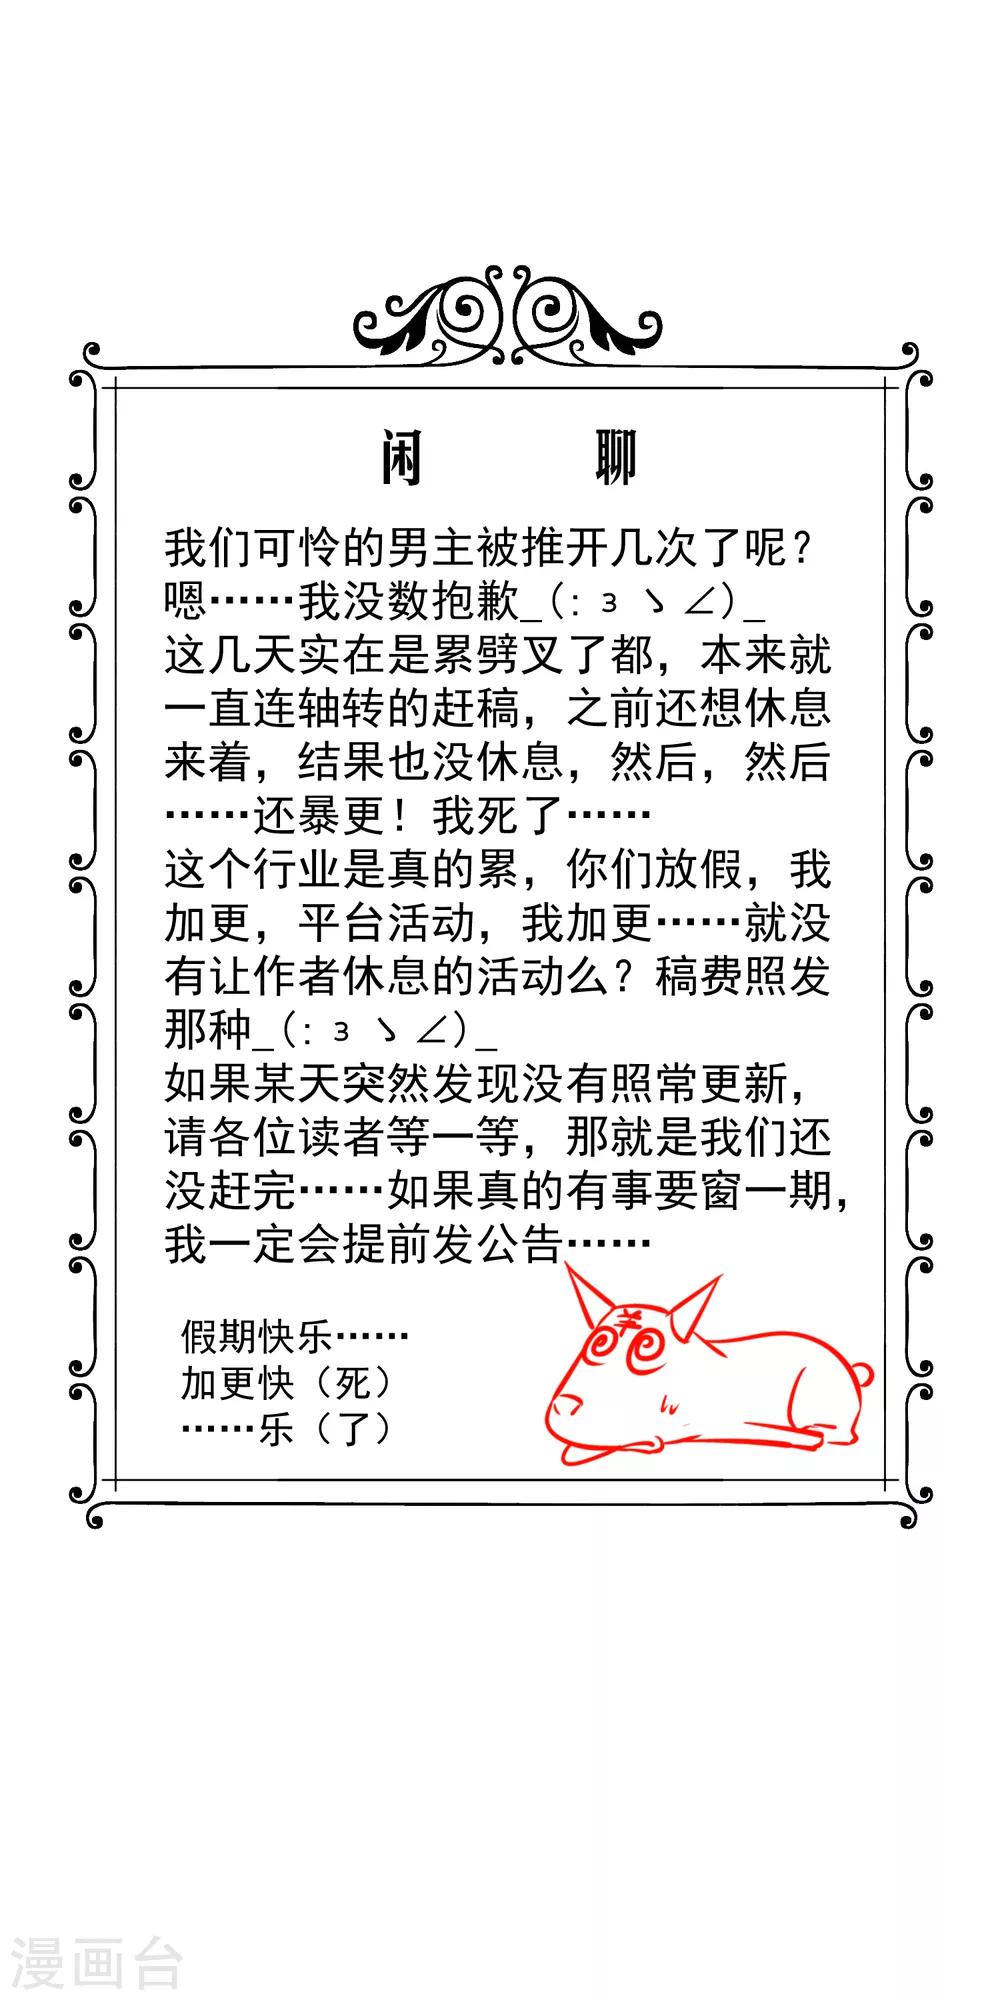 闲 聊
我们可怜的男主被推开几次了呢？
嗯……我没数抱歉_(:з ヽ∠)_
这几天实在是累劈叉了都，本来就
一直连轴转的赶稿，之前还想休息
来着，结果也没休息，然后，然后
……还暴更！我死了……
这个行业是真的累，你们放假，我
加更，平台活动，我加更……就没
有让作者休息的活动么？稿费照发
那种_(:з ヽ∠)_
如果某天突然发现没有照常更新，
请各位读者等一等，那就是我们还
没赶完……如果真的有事要窗一期，
我一定会提前发公告……
假期快乐……
加更快（死）
……乐（了）
漫画台